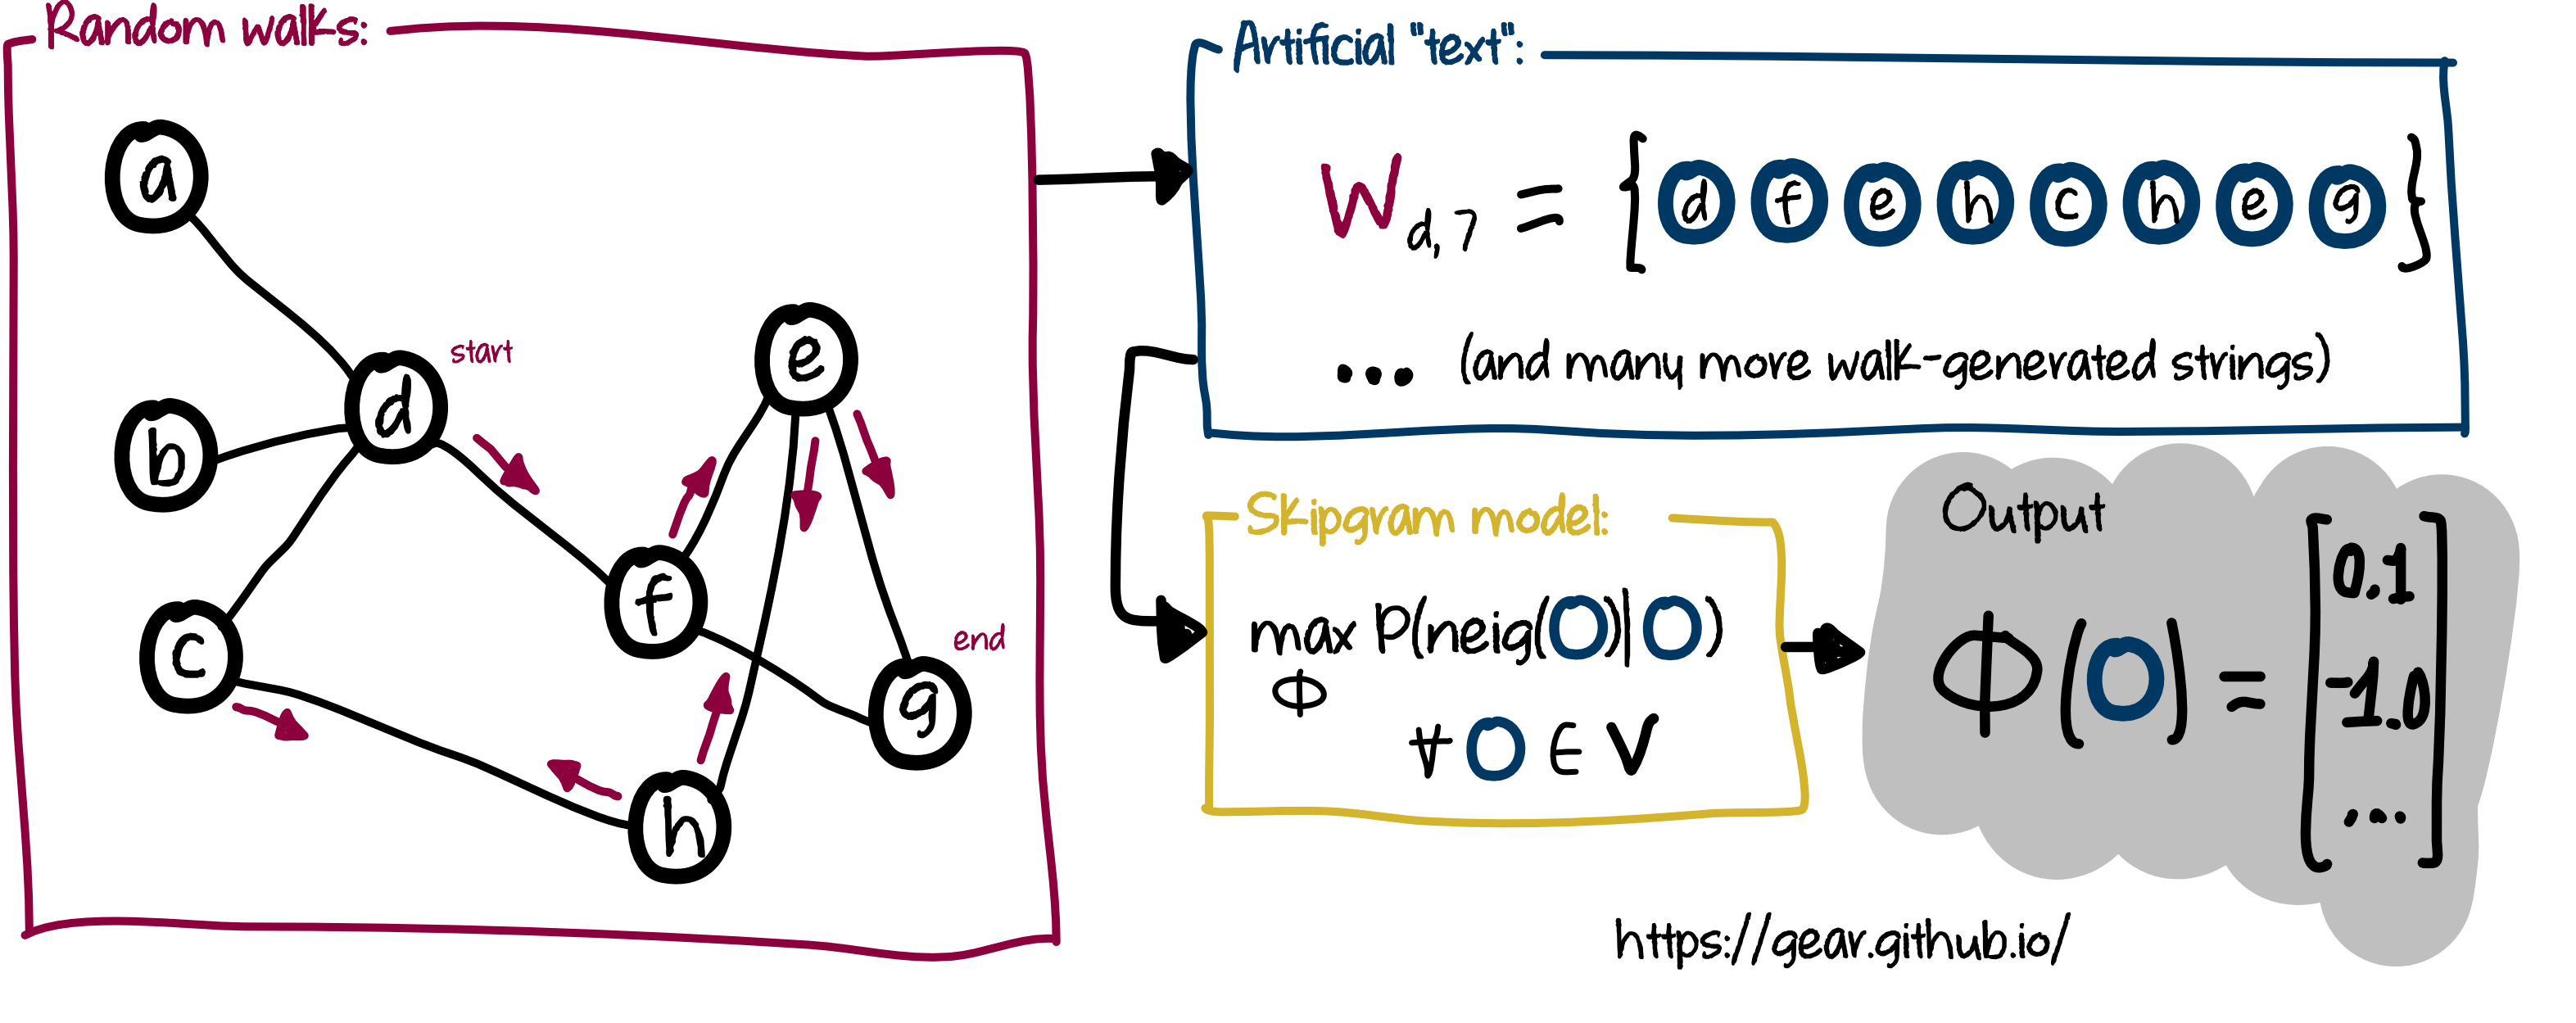 Random walks:
a
b
c
d
start
e
f
g
end
h
Artificial "text":
W d, 7 = { d f e h c h e g }
... (and many more walk-generated strings)
Skipgram model:
max P(neig(O)|O)
Φ
∀ O ∈ V
Output
Φ(O) = [ 0.1
-1.0
... ]
https://gear.github.io/